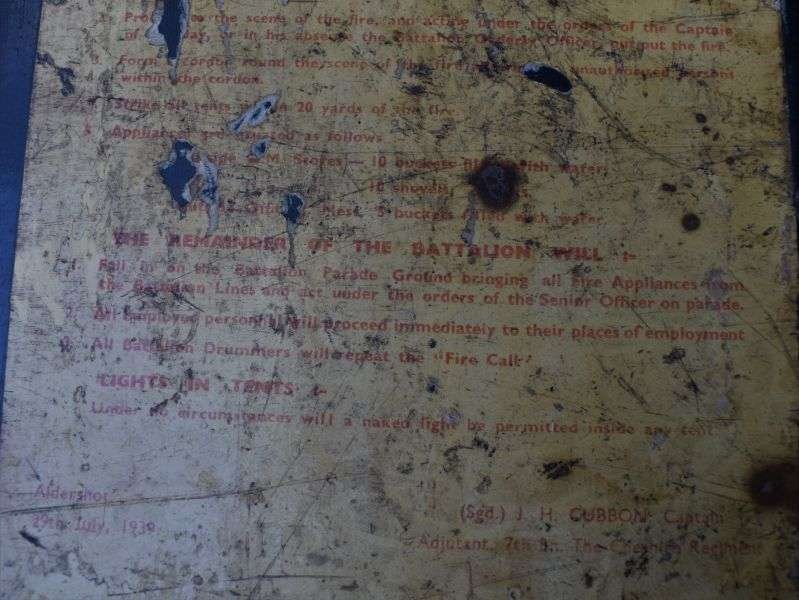 to the scene of the fire, and acting under the orders of the Captain
of day, or in his absence the Battalion Orderly Officer, put out the fire.
3. Form a cordon round the scene of the fire unauthorised persons
within the cordon.
Strike all tents within 20 yards of the fire.
5. Appliances as follows
M. Stores — 10 buckets filled with water,
10 shovels,
Mess, 5 buckets filled with water
THE REMAINDER OF THE BATTALION WILL :-
1. Fall in on the Battalion Parade Ground bringing all Fire Appliances from
the Battalion Lines and act under the orders of the Senior Officer on parade.
2. All employed personnel will proceed immediately to their places of employment
All Battalion Drummers will repeat the "Fire Call"
LIGHTS IN TENTS :-
Under no circumstances will a naked light be permitted inside any tent.
Aldershot
29th July, 1939
(Sgd.) J. H. CUBBON Captain
Adjutant, 7th Bn. The Cheshire Regiment